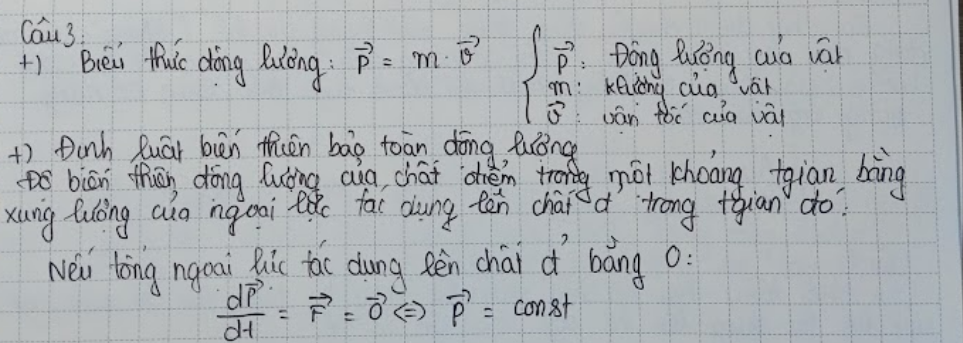 Câu 3:
+) Biểu thức động lượng: p⃗ = m . v⃗ { p⃗ : Động lượng của vật
m: klượng của vật
v⃗ : vận tốc của vật
+) Định luật biến thiên bảo toàn động lượng
Độ biến thiên động lượng của chất điểm trong một khoảng tgian bằng
xung lượng của ngoại lực tác dụng lên chất đ trong tgian đó.
Nếu tổng ngoại lực tác dụng lên chất đ bằng 0:
dp⃗/dt = F⃗ = 0⃗ <=> p⃗ = const